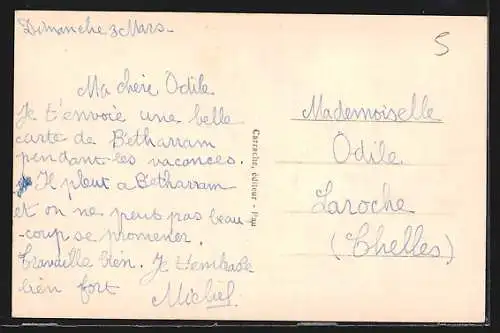 Dimanche 3 Mars-
Ma chère Odile
Je t'envoie une belle
carte de Bétharram
pendant les vacances.
Il pleut à Bétharram
et on ne peut pas beau-
-coup se promener.
Travaille bien. Je t'embrasse
bien fort
Michel.
Carrache, éditeur - Pau
5
Mademoiselle
Odile
Laroche
(Chelles)